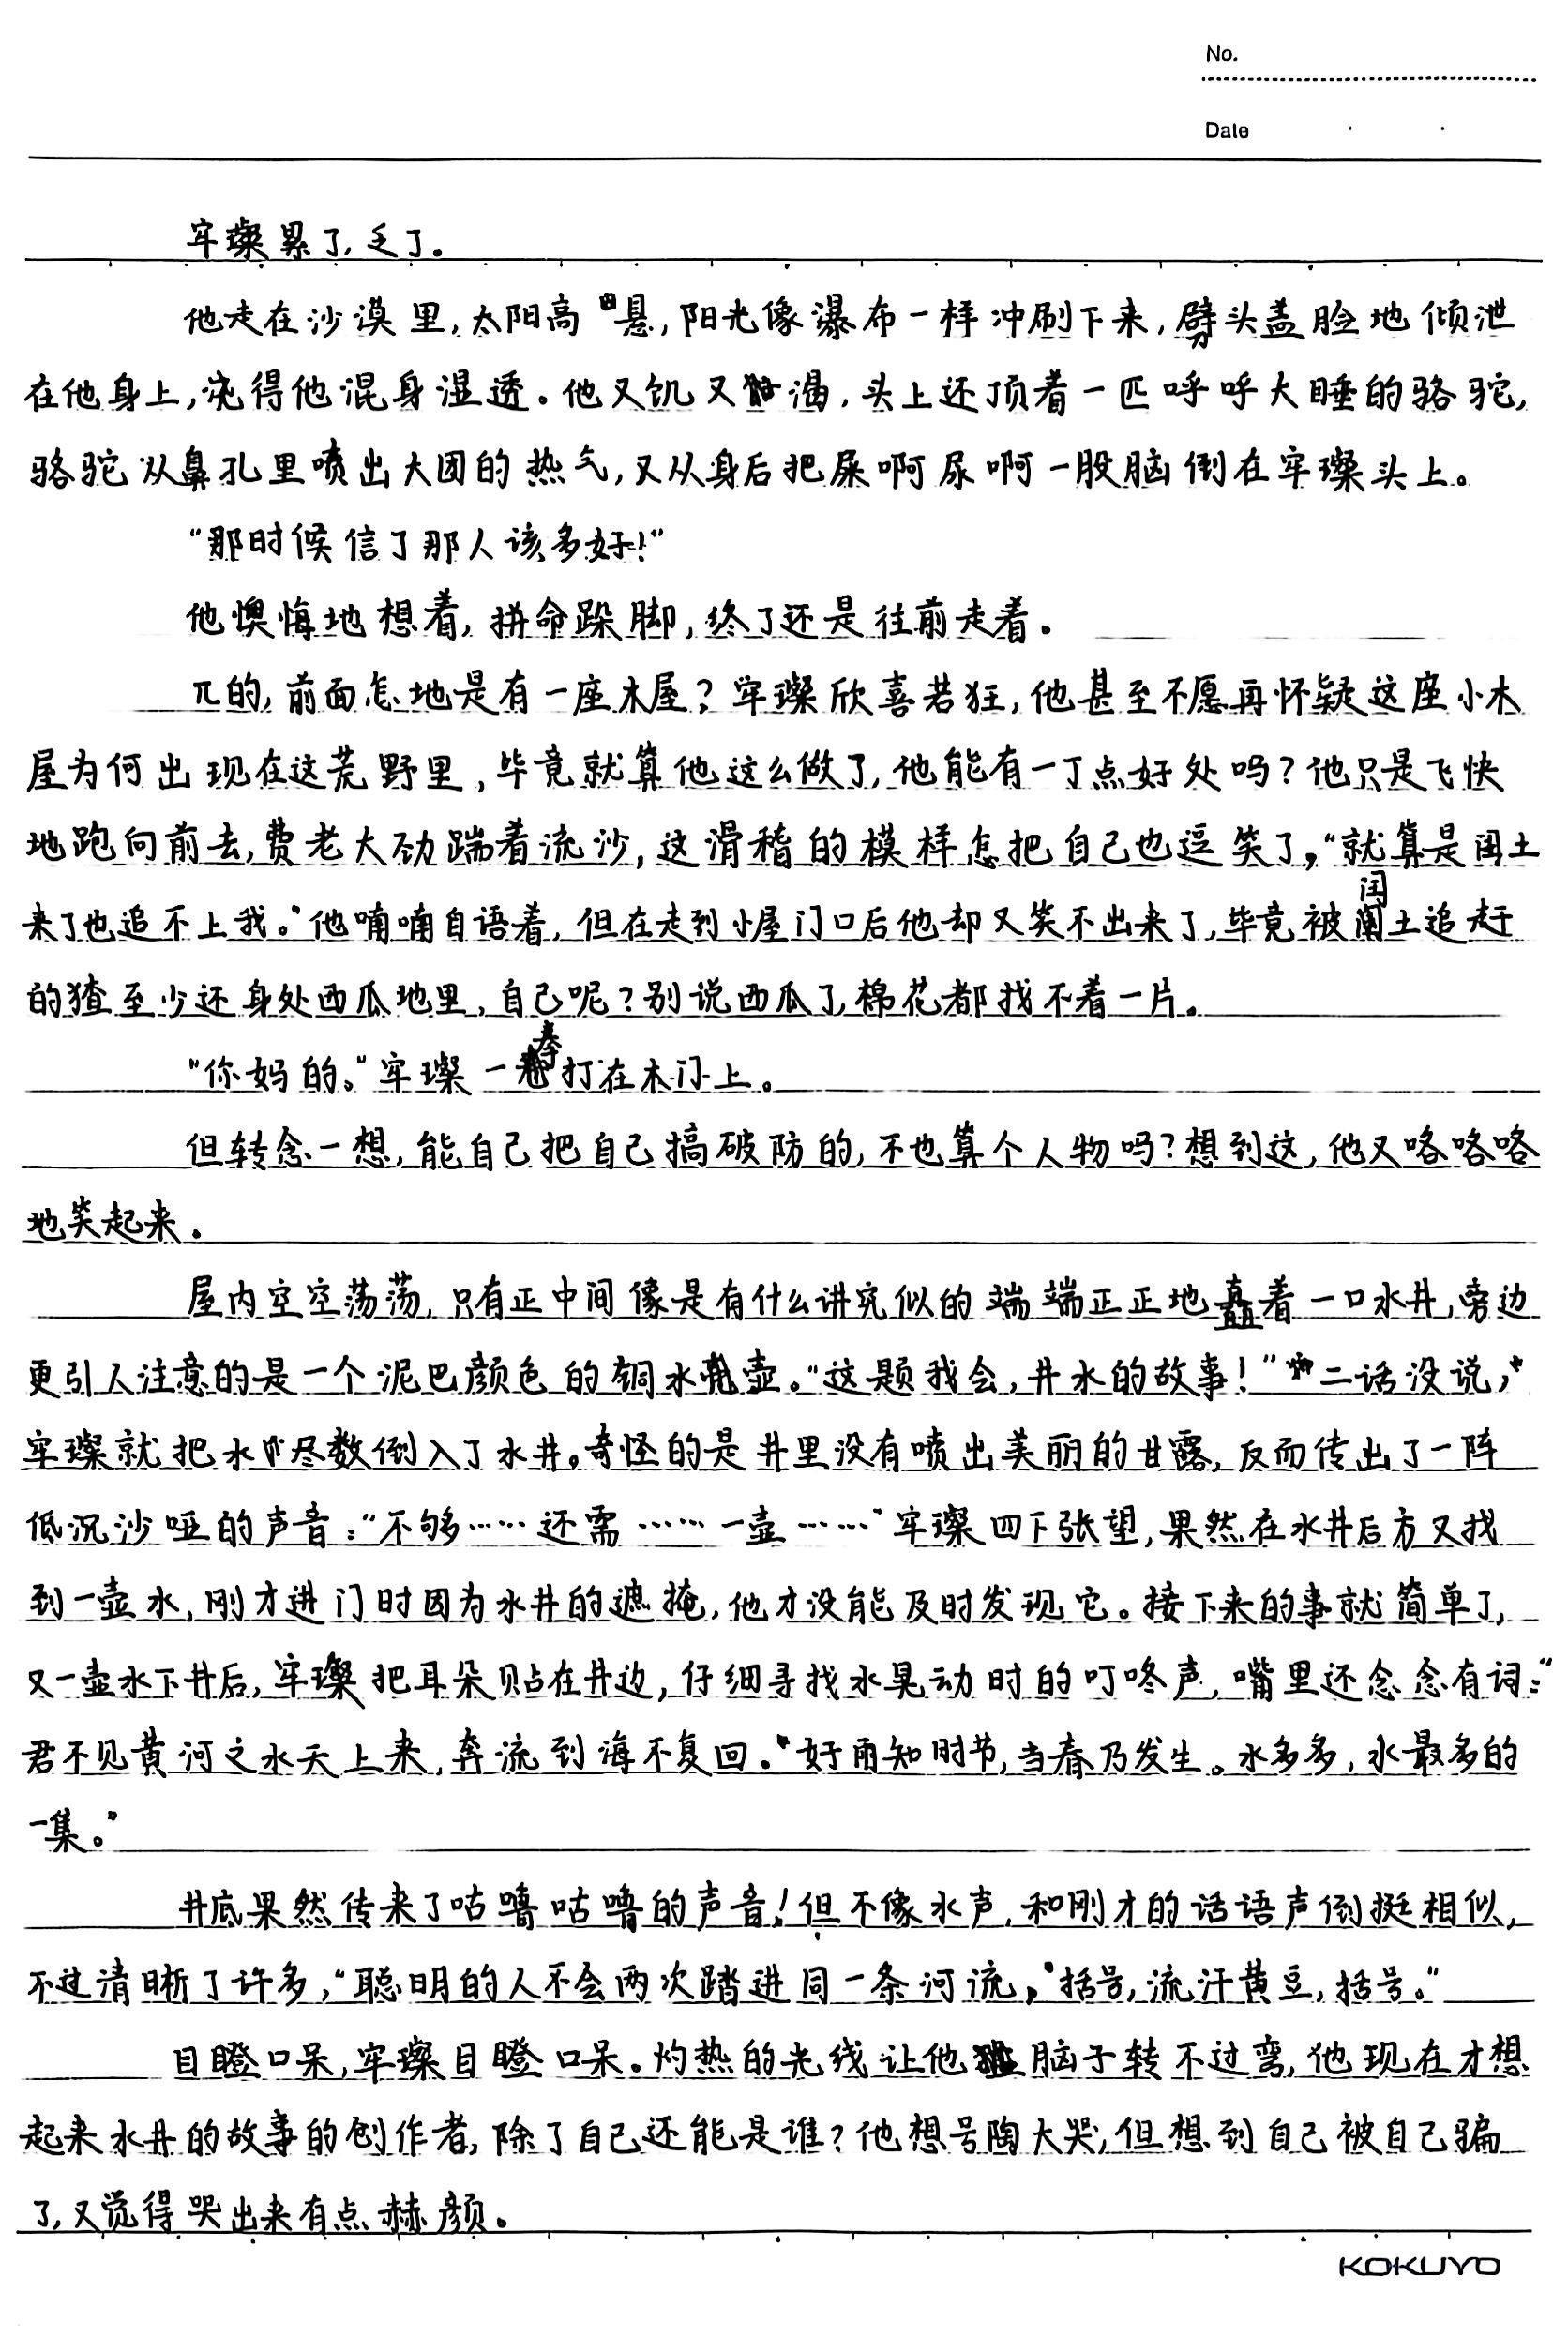 No.
Date
牢璨累了,乏了。
他走在沙漠里,太阳高悬,阳光像瀑布一样冲刷下来,劈头盖脸地倾泄
在他身上,浇得他混身湿透。他又饥又渴,头上还顶着一匹呼呼大睡的骆驼,
骆驼从鼻孔里喷出大团的热气,又从身后把屎啊尿啊一股脑倒在牢璨头上。
“那时候信了那人该多好!”
他懊悔地想着,拼命跺脚,终了还是往前走着。
π的,前面怎地是有一座木屋?牢璨欣喜若狂,他甚至不愿再怀疑这座小木
屋为何出现在这荒野里,毕竟就算他这么做了,他能有一丁点好处吗?他只是飞快
地跑向前去,费老大劲踹着流沙,这滑稽的模样怎把自己也逗笑了,“就算是闰土
来了也追不上我。”他喃喃自语着,但在走到小屋门口后他却又笑不出来了,毕竟被闰土追赶
的猹至少还身处西瓜地里,自己呢?别说西瓜了,棉花都找不着一片。
“你妈的。”牢璨一拳打在木门上。
但转念一想,能自己把自己搞破防的,不也算个人物吗?想到这,他又咯咯咯
地笑起来。
屋内空空荡荡,只有正中间像是有什么讲究似的端端正正地矗着一口水井,旁边
更引人注意的是一个泥巴颜色的铜水壶。“这题我会,井水的故事!”二话没说,
牢璨就把水尽数倒入了水井。奇怪的是井里没有喷出美丽的甘露,反而传出了一阵
低沉沙哑的声音:“不够……还需……一壶……”牢璨四下张望,果然在水井后方又找
到一壶水,刚才进门时因为水井的遮掩,他才没能及时发现它。接下来的事就简单了,
又一壶水下井后,牢璨把耳朵贴在井边,仔细寻找水晃动时的叮咚声,嘴里还念念有词:“
君不见黄河之水天上来,奔流到海不复回。好雨知时节,当春乃发生。水多多,水最多的
一集。”
井底果然传来了咕噜咕噜的声音!但不像水声,和刚才的话语声倒挺相似,
不过清晰了许多,“聪明的人不会两次踏进同一条河流,括号,流汗黄豆,括号。”
目瞪口呆,牢璨目瞪口呆。灼热的光线让他脑子转不过弯,他现在才想
起来水井的故事的创作者,除了自己还能是谁?他想号陶大哭,但想到自己被自己骗
了,又觉得哭出来有点赫颜。
KOKUYO